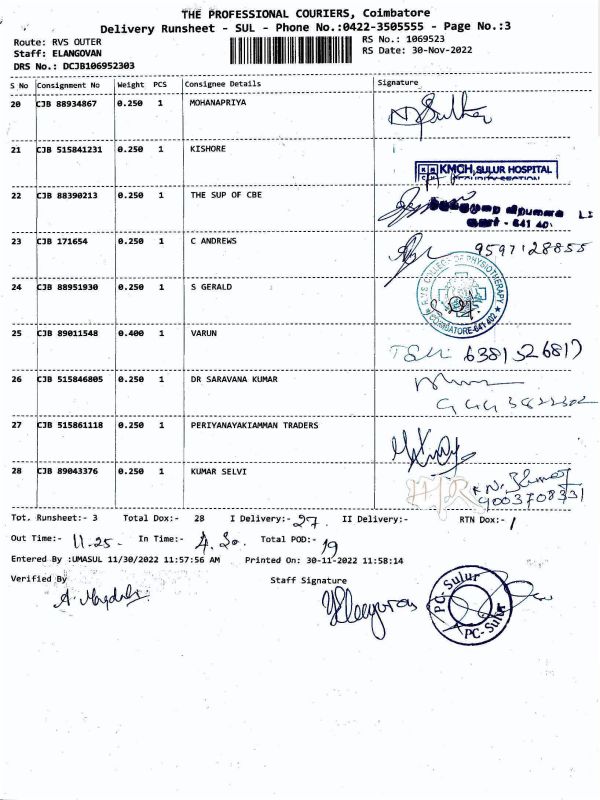 THE PROFESSIONAL COURIERS, Coimbatore
Delivery Runsheet - SUL - Phone No.:0422-3505555 - Page No.:3
Route: RVS OUTER
RS No.: 1069523
Staff: ELANGOVAN
RS Date: 30-Nov-2022
DRS No.: DCJB106952303
S No Consignment No Weight PCS Consignee Details Signature
20 CJB 88934867 0.250 1 MOHANAPRIYA
21 CJB 515841231 0.250 1 KISHORE
KMCH, SULUR HOSPITAL
SECURITY SECTION
22 CJB 88390213 0.250 1 THE SUP OF CBE
641 40
23 CJB 171654 0.250 1 C ANDREWS
9597128855
24 CJB 88951930 0.250 1 S GERALD
R.V.S. COLLEGE OF PHYSIOTHERAPY
COIMBATORE-641 402
25 CJB 89011548 0.400 1 VARUN
26 CJB 515846805 0.250 1 DR SARAVANA KUMAR
27 CJB 515861118 0.250 1 PERIYANAYAKIAMMAN TRADERS
28 CJB 89043376 0.250 1 KUMAR SELVI
Tot. Runsheet:- 3 Total Dox:- 28 I Delivery:- 27 II Delivery:- RTN Dox:- 1
Out Time:- 11.25 In Time:- 4.30 Total POD:- 19
Entered By :UMASUL 11/30/2022 11:57:56 AM Printed On: 30-11-2022 11:58:14
Verified By Staff Signature
PC-Sulur
PC-Sulur